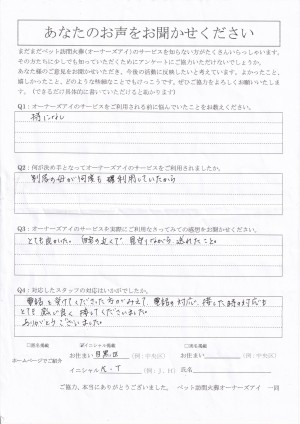 あなたのお声をお聞かせください
まだまだペット訪問火葬(オーナーズアイ)のサービスを知らない方がたくさんいらっしゃいます。
その方たちに少しでも知っていただくためにアンケートにご協力いただけないでしょうか。
あなた様のご意見をお聞かせいただき、今後の活動に反映したいと考えています。よかったこと、
嬉しかったこと、どのような些細なことでもけっこうです。ぜひご協力をよろしくお願いいたしま
す。(できるだけ具体的に書いていただけると助かります)
Q1:オーナーズアイのサービスをご利用される前に悩んでいたことをお教えください。
特になし
Q2:何が決め手となってオーナーズアイのサービスをご利用されましたか。
別居の母が何度も 利用していたから
Q3:オーナーズアイのサービスを実際にご利用なさってみての感想をお聞かせください。
とても良かった。自宅の近くで、見守りながら 送れたこと。
Q4:対応したスタッフの対応はいかがでしたか。
電話を受けてくださった方がみえて、電話の対応、接した時の対応も
とても 良くして下さいました。
ありがとうございました。
□匿名掲載 イニシャル掲載 □実名掲載
お住まい 目黒区 (例:中央区) お住まい (例:中央区)
ホームページでご紹介
イニシャル K.T (例:J.H) 氏名
ご協力、本当にありがとうございました。 ペット訪問火葬オーナーズアイ 一同